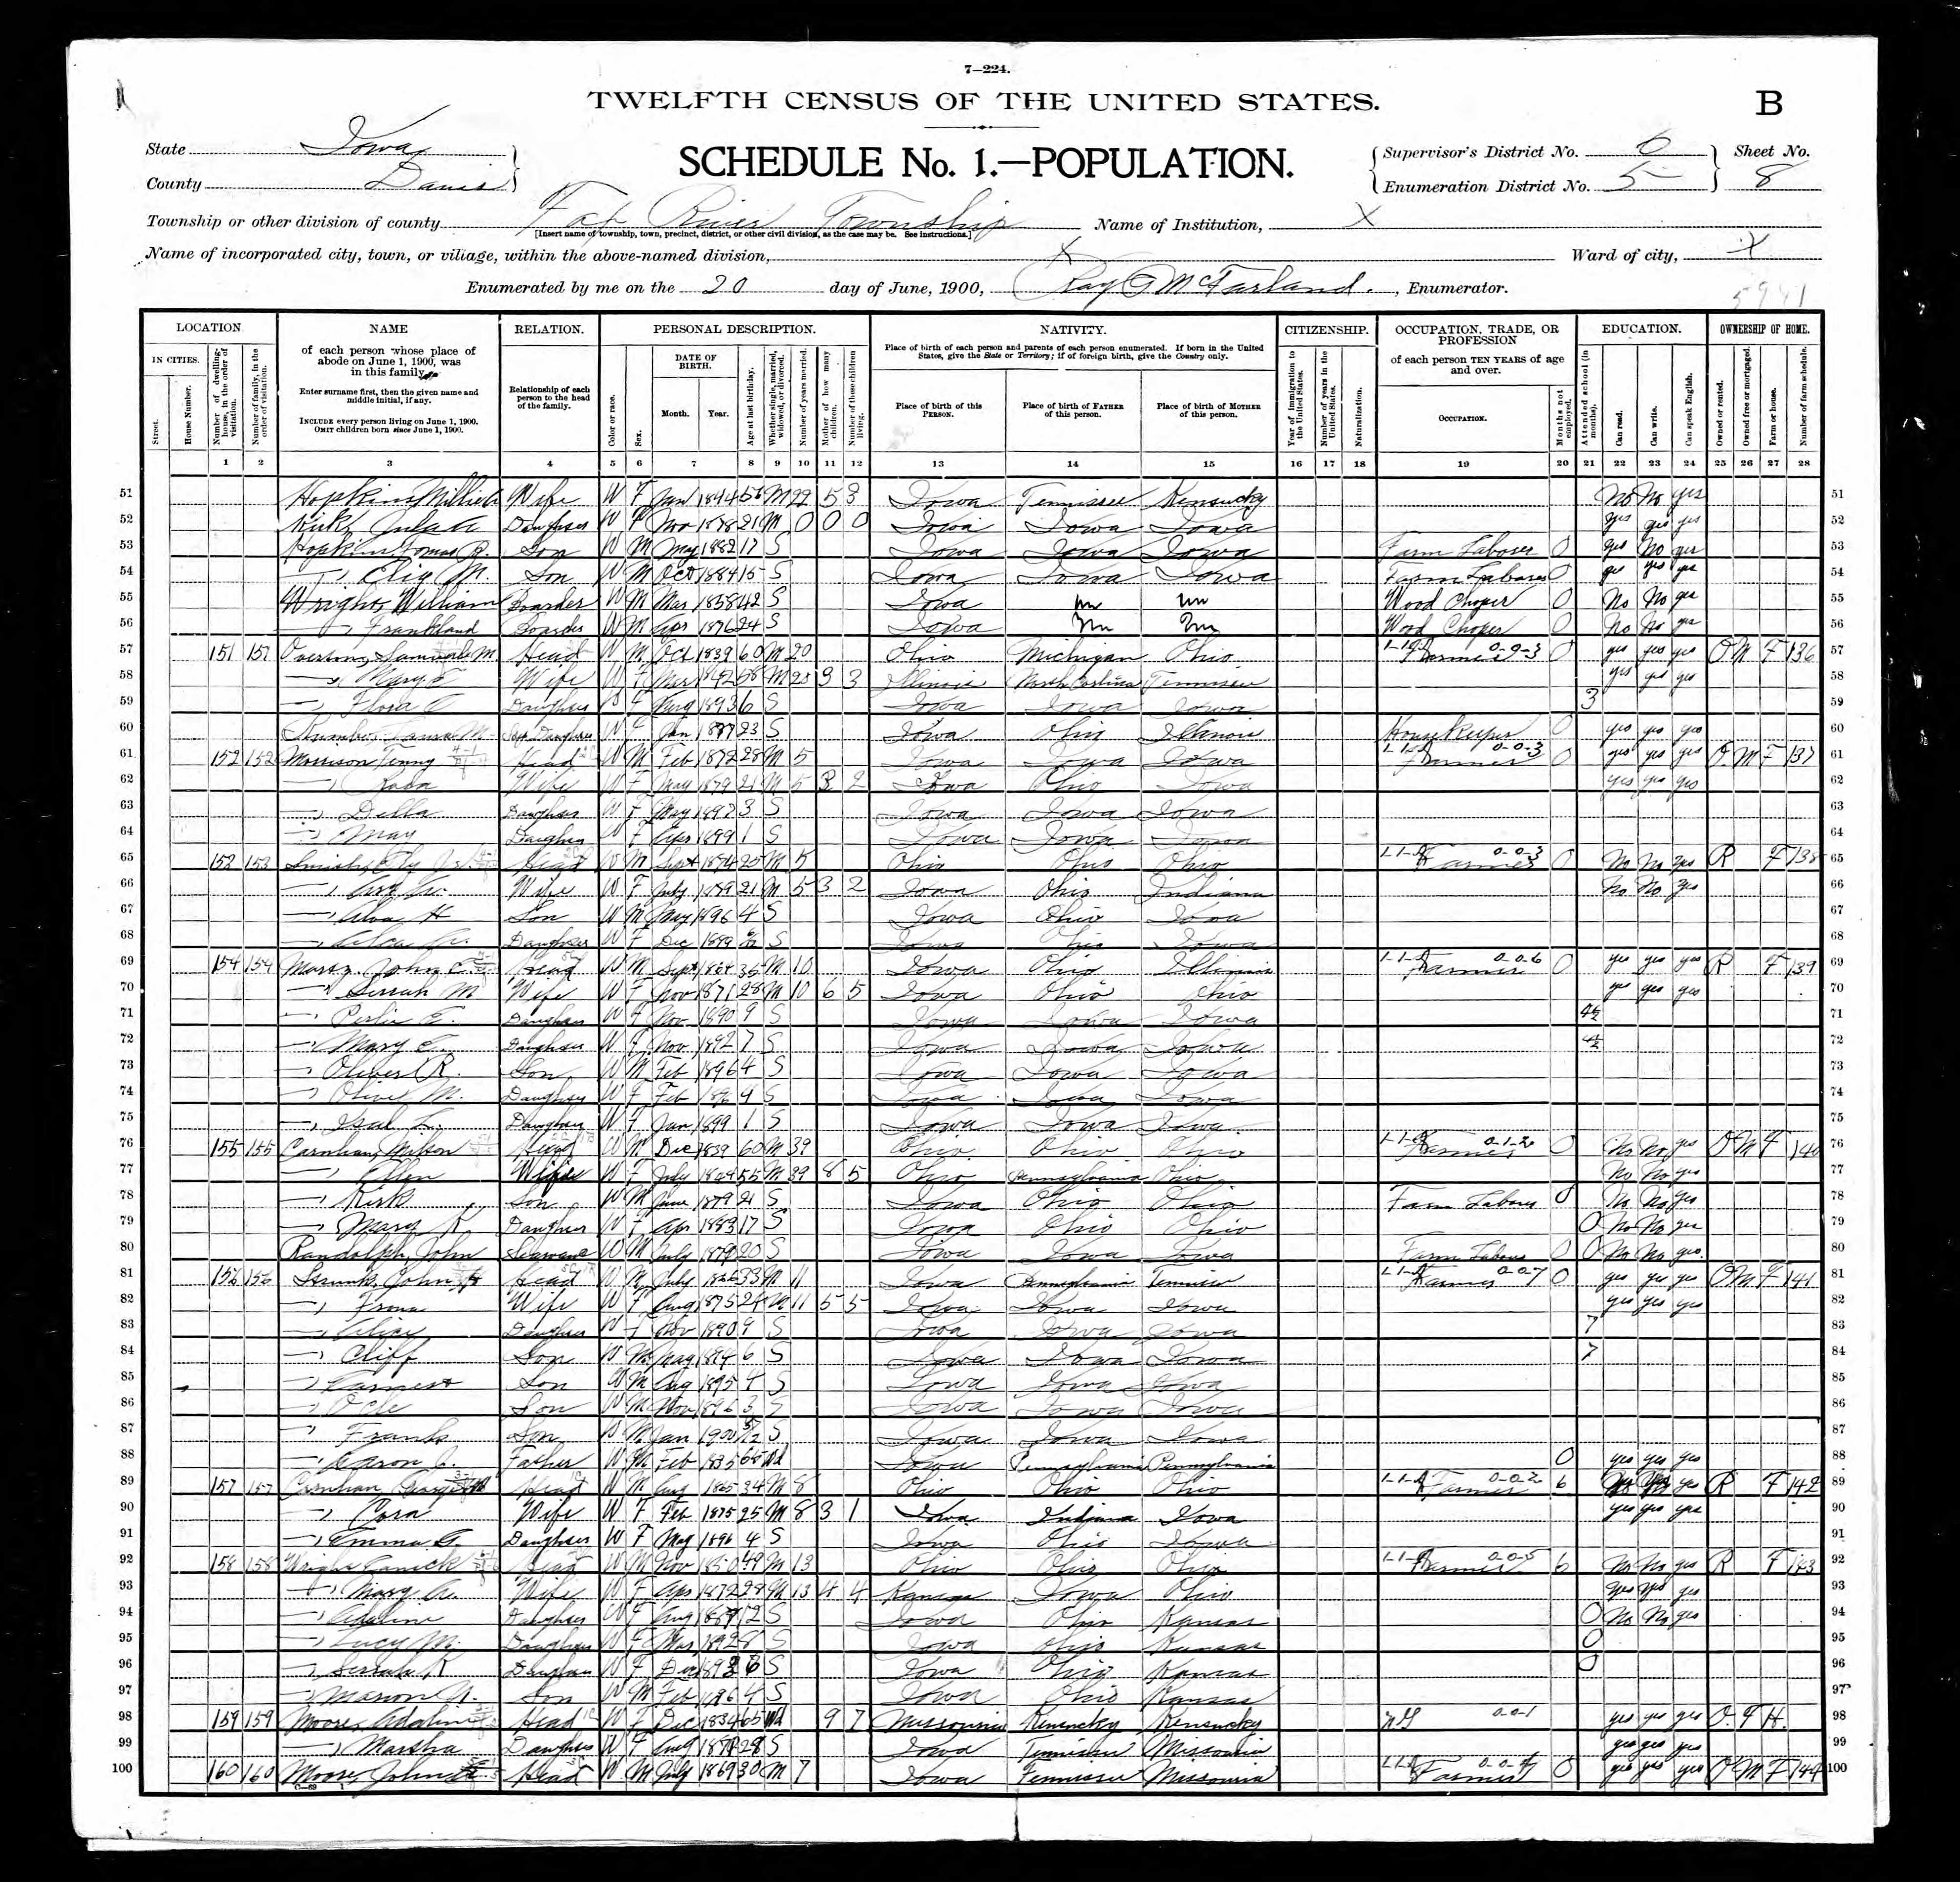 7—224.
TWELFTH CENSUS OF THE UNITED STATES.
B
State Iowa
County Davis
SCHEDULE No. 1.—POPULATION.
Supervisor's District No. 6
Enumeration District No. 5
Sheet No.
8
Township or other division of county Fox River Township
[Insert name of township, town, precinct, district, or other civil division, as the case may be. See instructions.]
Name of Institution, X
Name of incorporated city, town, or village, within the above-named division, X
Ward of city, X
Enumerated by me on the 20 day of June, 1900, Ray G McFarland., Enumerator.
5941
LOCATION.
IN CITIES.
Street.
House Number.
Number of dwelling-house, in the order of visitation.
Number of family, in the order of visitation.
NAME
of each person whose place of abode on June 1, 1900, was in this family.
Enter surname first, then the given name and middle initial, if any.
INCLUDE every person living on June 1, 1900.
OMIT children born since June 1, 1900.
RELATION.
Relationship of each person to the head of the family.
PERSONAL DESCRIPTION.
Color or race.
Sex.
DATE OF BIRTH.
Month. Year.
Age at last birthday.
Whether single, married, widowed, or divorced.
Number of years married.
Mother of how many children.
Number of these children living.
NATIVITY.
Place of birth of each person and parents of each person enumerated. If born in the United States, give the State or Territory; if of foreign birth, give the Country only.
Place of birth of this PERSON.
Place of birth of FATHER of this person.
Place of birth of MOTHER of this person.
CITIZENSHIP.
Year of immigration to the United States.
Number of years in the United States.
Naturalization.
OCCUPATION, TRADE, OR PROFESSION
of each person TEN YEARS of age and over.
OCCUPATION.
Months not employed.
EDUCATION.
Attended school (in months).
Can read.
Can write.
Can speak English.
OWNERSHIP OF HOME.
Owned or rented.
Owned free or mortgaged.
Farm or house.
Number of farm schedule.
1 2 3 4 5 6 7 8 9 10 11 12 13 14 15 16 17 18 19 20 21 22 23 24 25 26 27 28
51 Hopkins Wife W F Jan M 22 5 3 Iowa Tennissee Kentucky No No yes 51
52 Daughter W F Nov 1878 21 M 0 0 0 Iowa Iowa Iowa yes yes yes 52
53 Hopkins Tomas R. Son W M May 1882 17 S Iowa Iowa Iowa Farm Laborer 0 yes No yes 53
54 — M. Son W M Oct 1884 15 S Iowa Iowa Iowa Farm Laborer 0 yes yes yes 54
55 Wright, William Boarder W M Mar 1858 42 S Iowa Un Un Wood Choper 0 No No yes 55
56 — Frankland Boarder W M Apr 1876 24 S Iowa Un Un Wood Choper 0 No No yes 56
57 151 151 M. Head W M Oct 1839 60 M 20 Ohio Michigan Ohio Farmer 0-0-3 0 yes yes yes O M F 136 57
58 — Mary E Wife W F Mar 1842 58 M 20 3 3 Illinois North Carolina Tennissee yes yes yes 58
59 — Flora E Daughter W F Aug 1893 6 S Iowa Iowa Iowa 3 59
60 M. Step Daughter W F Jan 1877 23 S Iowa Ohio Illinois House Keeper 0 yes yes yes 60
61 152 152 Morrison Head W M Feb 1872 28 M 5 Iowa Iowa Iowa Farmer 0-0-3 0 yes yes yes O M F 137 61
62 — Wife W F May 1879 21 M 5 3 2 Iowa Ohio Iowa yes yes yes 62
63 — Della Daughter W F May 1897 3 S Iowa Iowa Iowa 63
64 — May Daughter W F Apr 1899 1 S Iowa Iowa Iowa 64
65 153 153 Smith, Head W M Sept 1874 25 M 5 Ohio Ohio Ohio Farmer 0-0-3 0 No No yes R F 138 65
66 — Wife W F July 21 M 5 3 2 Iowa Ohio Indiana No No yes 66
67 — Alva H Son W M May 1896 4 S Iowa Ohio Iowa 67
68 — Daughter W F Dec 1899 6/12 S Iowa Ohio Iowa 68
69 154 154 John E. Head W M Sept 1864 35 M 10 Iowa Ohio Illinois Farmer 0-0-6 0 yes yes yes R F 139 69
70 — Serrah M Wife W F Nov 1871 28 M 10 6 5 Iowa Ohio Ohio yes yes yes 70
71 — E. Daughter W F Nov 1890 9 S Iowa Iowa Iowa 71
72 — Mary E. Daughter W F Nov 1892 7 S Iowa Iowa Iowa 72
73 — Oliver R. Son W M Feb 1896 4 S Iowa Iowa Iowa 73
74 — Olive M. Daughter W F Feb 1896 4 S Iowa Iowa Iowa 74
75 — L. Daughter W F Jan 1899 1 S Iowa Iowa Iowa 75
76 155 155 Carnhan, Wilson Head W M Dec 1839 60 M 39 Ohio Ohio Ohio Farmer 0-1-2 0 No No yes O M F 140 76
77 — Ellen Wife W F July 55 M 39 8 5 Ohio Pennsylvania Ohio No No yes 77
78 — Kirk Son W M June 1879 21 S Iowa Ohio Ohio Farm Laborer 0 No No yes 78
79 — Mary K Daughter W F Apr 1883 17 S Iowa Ohio Ohio 0 No No yes 79
80 Randolph, John Servant W M July 1879 20 S Iowa Iowa Iowa Farm Laborer 0 0 No No yes 80
81 156 156 Strunk, John Head W M July 1866 33 M 11 Iowa Pennsylvania Tennissee Farmer 0-0-7 0 yes yes yes O M F 141 81
82 — Wife W F Aug 1875 24 M 11 5 5 Iowa Iowa Iowa yes yes yes 82
83 — Daughter W F Nov 1890 9 S Iowa Iowa Iowa 7 83
84 — Cliff Son W M May 1894 6 S Iowa Iowa Iowa 7 84
85 — Earnest Son W M Aug 1895 4 S Iowa Iowa Iowa 85
86 — Son W M Nov 1896 3 S Iowa Iowa Iowa 86
87 — Frank Son W M Jan 1900 5/12 S Iowa Iowa Iowa 87
88 — J. Father W M Feb 1835 65 Wd Iowa Pennsylvania Pennsylvania 0 yes yes yes 88
89 157 157 Carnhan, George Head W M Aug 1865 34 M 8 Ohio Ohio Ohio Farmer 0-0-2 6 yes R F 142 89
90 — Cora Wife W F Feb 1875 25 M 8 3 1 Iowa Indiana Iowa yes yes yes 90
91 — Emma G. Daughter W F May 1896 4 S Iowa Ohio Iowa 91
92 158 158 Wright Head W M Nov 1850 49 M 13 Ohio Ohio Ohio Farmer 0-0-5 6 No No yes R F 143 92
93 — Mary A. Wife W F Apr 1872 28 M 13 4 4 Kansas Iowa Ohio yes yes yes 93
94 — Adaline Daughter W F Aug 1887 12 S Iowa Ohio Kansas 0 No No yes 94
95 — Lucy M. Daughter W F Mar 1892 8 S Iowa Ohio Kansas 0 95
96 — Serrah K Daughter W F Dec 1893 6 S Iowa Ohio Kansas 0 96
97 — Marion Son W M Feb 1896 4 S Iowa Ohio Kansas 97
98 159 159 Moore, Adaline Head W F Dec 1834 65 Wd 9 7 Missouri Kentucky Kentucky 0-0-1 yes yes yes O F H. 98
99 — Martha Daughter W F Aug 1871 28 S Iowa Tennissee Missouri yes yes yes 99
100 160 160 Moore, John Head W M July 1869 30 M 7 Iowa Tennissee Missouria Farmer 0-0-4 0 yes yes yes O M F 144 100